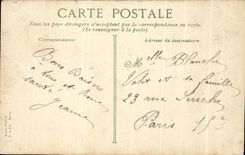 CARTE POSTALE
Tous les pays étrangers n'acceptent pas la correspondance au recto.
(Se renseigner à la poste)
Correspondance
Adresse du destinataire
Bons Baisers
à tous et bonne
santé
Jeanne
Mlle Blanche
et sa famille
23 rue
Paris